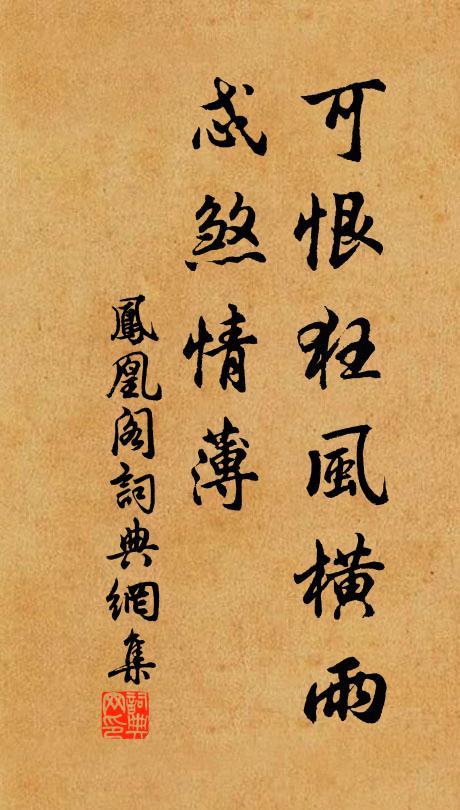 可恨狂風橫雨
忒煞情薄
鳳凰閣詞典網集
詞典
网印